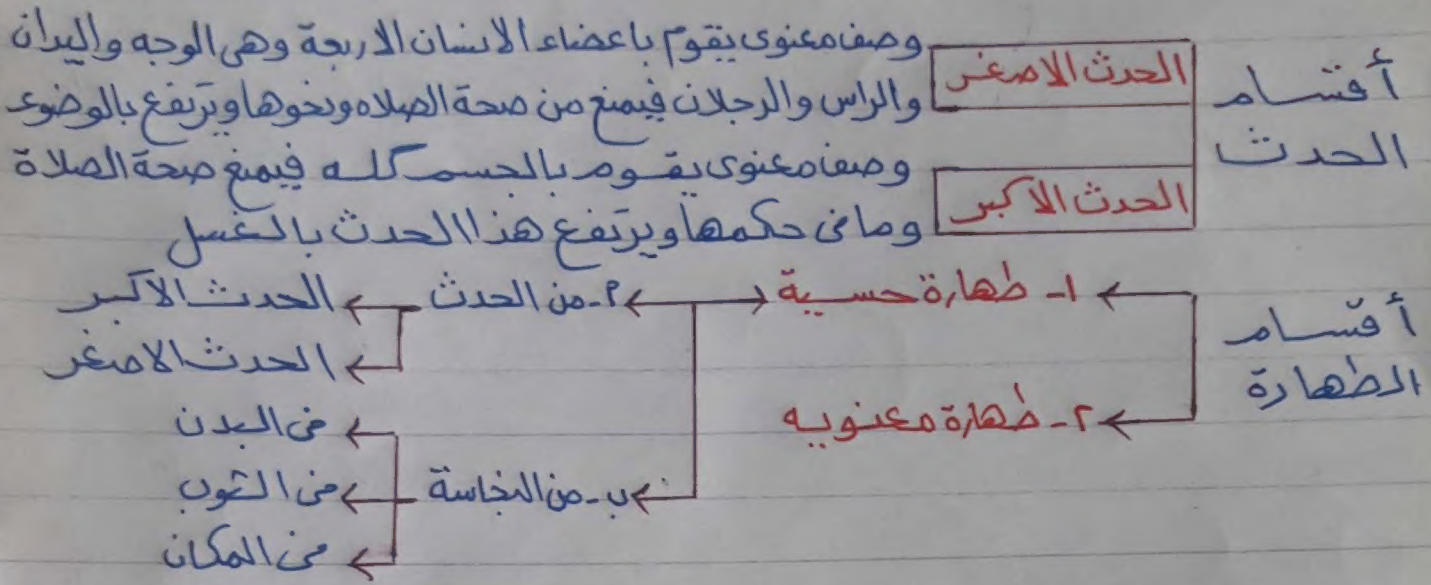 أقسام الحدث
الحدث الاصغر
وصف معنوى يقوم باعضاء الانسان الاربعة وهى الوجه واليدان
والراس والرجلان فيمنع من صحة الصلاه ونحوها ويرتفع بالوضوء
الحدث الاكبر
وصف معنوى يقوم بالجسم كله فيمنع صحة الصلاة
وما فى حكمها ويرتفع هذا الحدث بالغسل
أقسام الطهارة
١- طهارة حسية
أ- من الحدث
الحدث الاكبر
الحدث الاصغر
ب- من النجاسة
فى البدن
فى الثوب
فى المكان
٢- طهارة معنويه